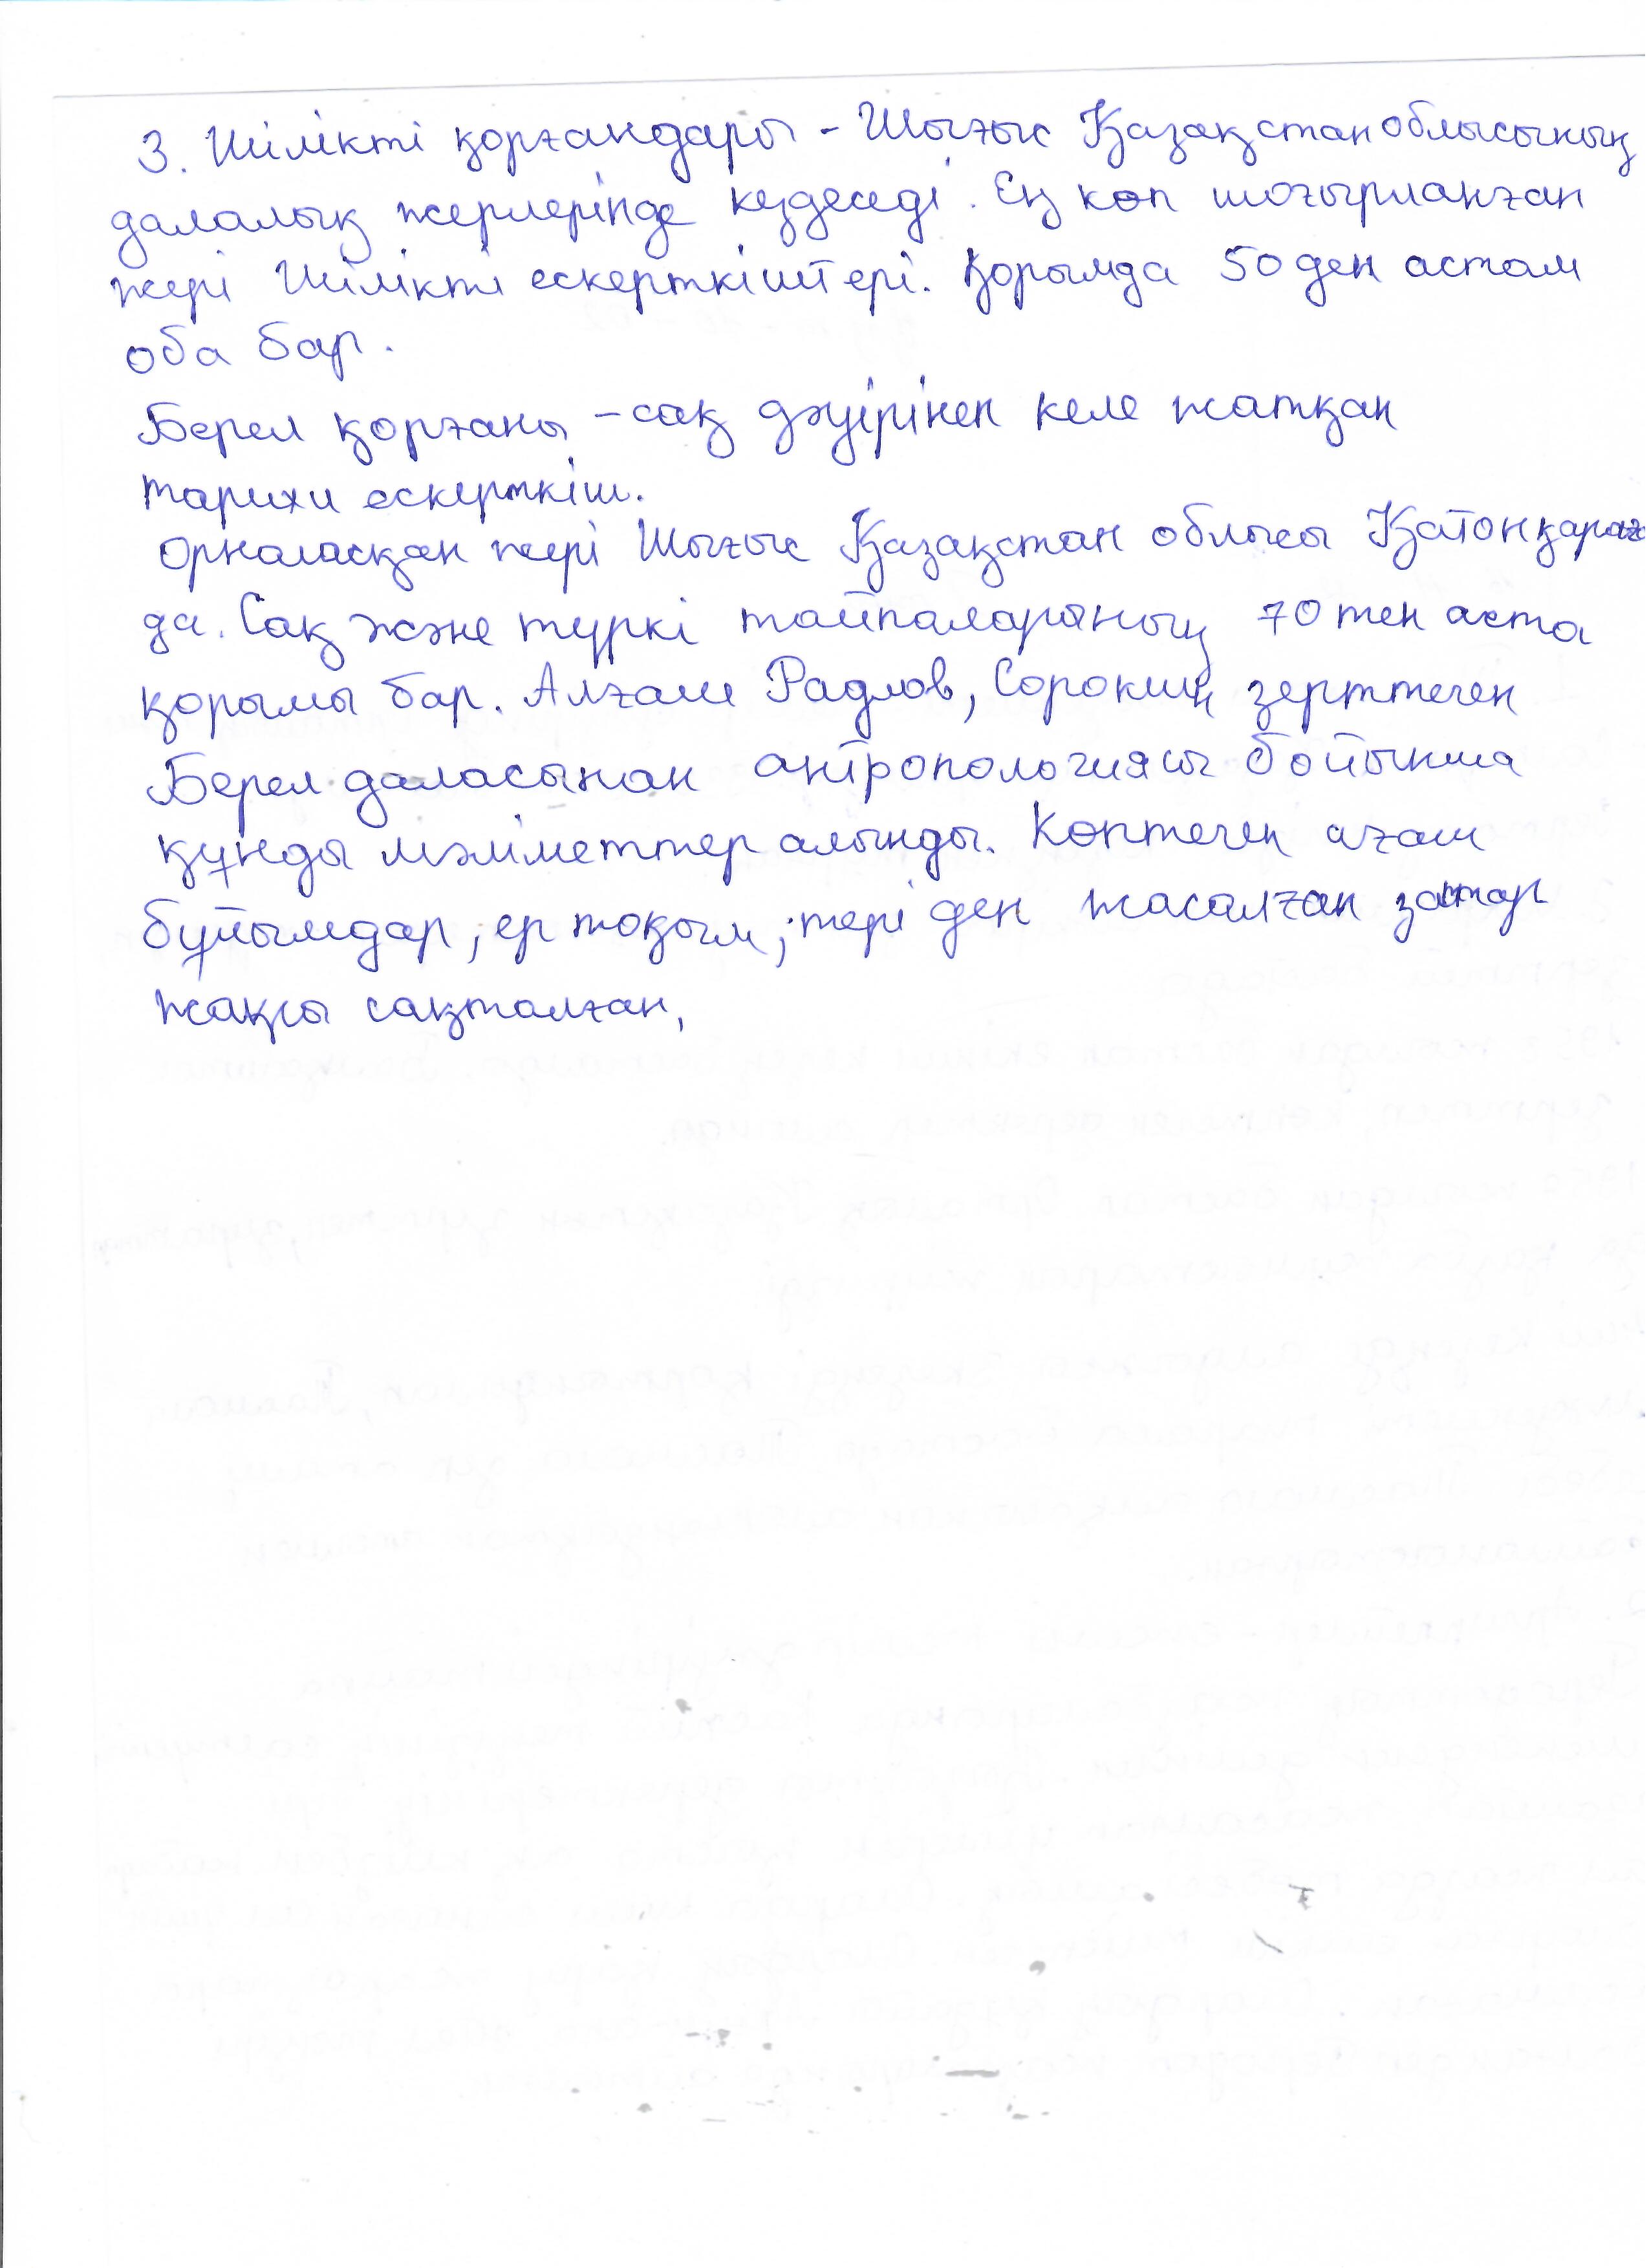 3. Шілікті қорғандары - Шығыс Қазақстан облысының
далалық жерлерінде кездеседі. Ең көп шоғырланған
жері Шілікті ескерткіштері. Қорымда 50 ден астам
оба бар.
Берел қорғаны - сақ дәуірінен келе жатқан
тарихи ескерткіш.
Орналасқан жері Шығыс Қазақстан облысы Қатонқараға
да. Сақ және түркі тайпаларының 70 тен аста
қорымы бар. Алғаш Радлов, Сорокин зерттеген
Берел даласынан антропологиясы бойынша
құнды мәліметтер алынды. Көптеген ағаш
бұйымдар, ер тоқым, теріден жасалған заттар
жақсы сақталған,